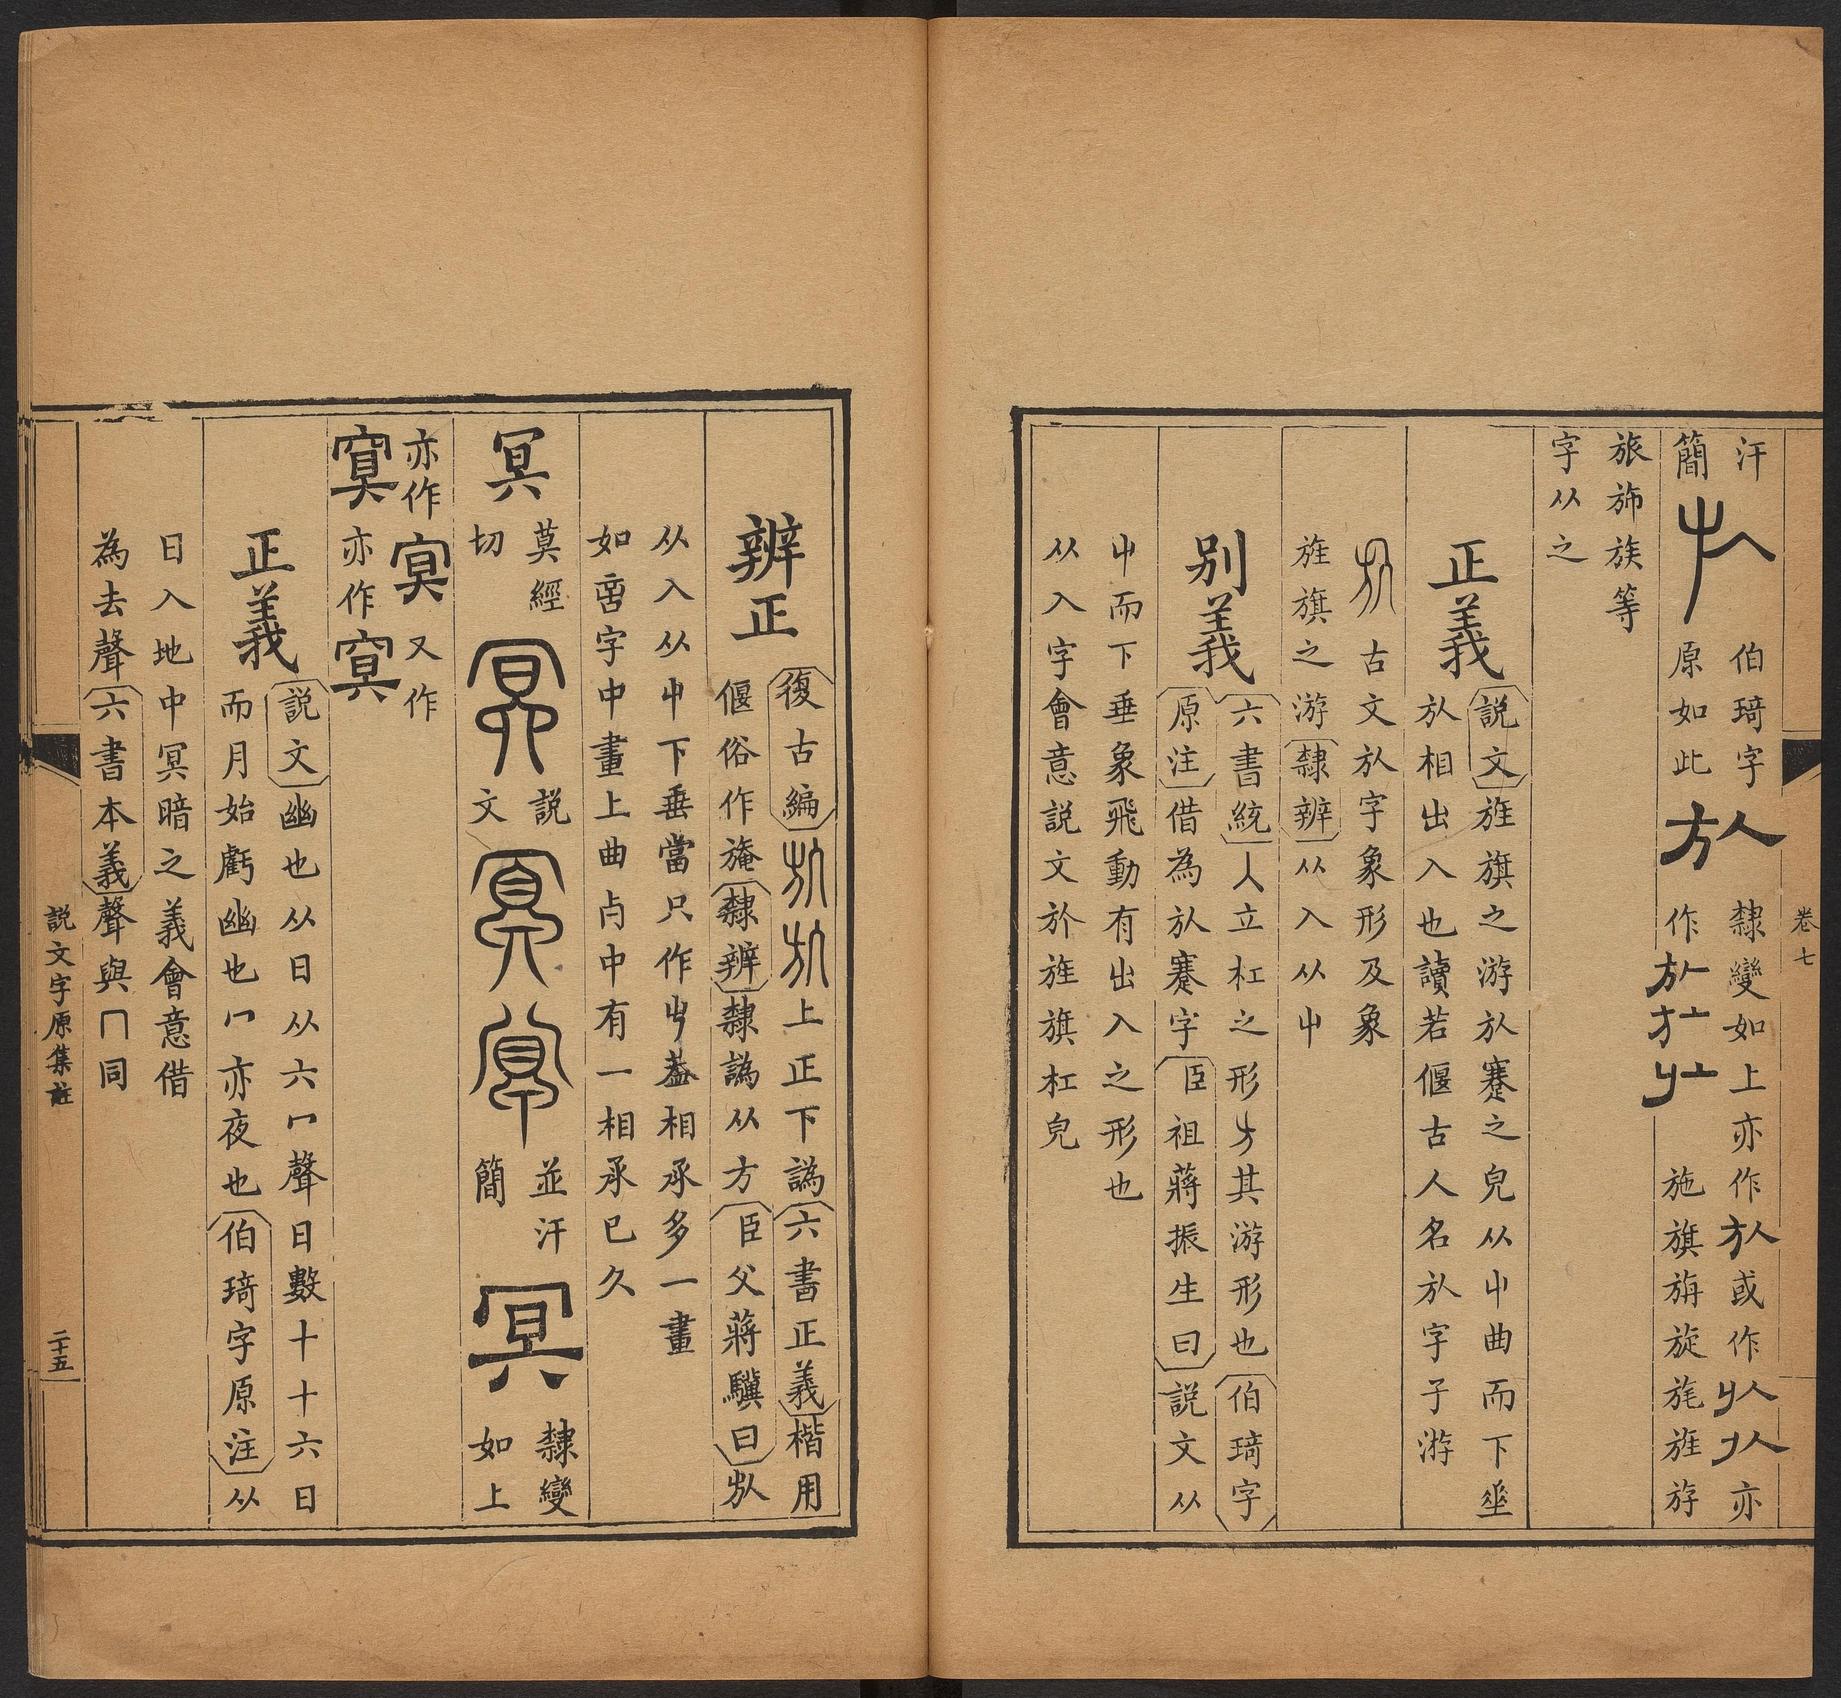 卷七
汗
簡
伯琦字
原如此
㫃
隸變如上亦作㫃或作㫃㫃亦
作㫃
施旗旃旋旄旌斿
旅斾族等
字从之
正義
説文旌旗之游㫃蹇之皃从屮曲而下垂
㫃相出入也讀若偃古人名㫃字子游
古文㫃字象形及象
旌旗之游隸辨从入从屮
別義
六書統人立杠之形其游形也伯琦字
原注借為㫃蹇字臣祖蔣振生曰説文从
屮而下垂象飛動有出入之形也
从入字會意説文於旌旗杠皃
辨正
復古編㫃㫃上正下譌六書正義楷用
偃俗作旖隸辨隸譌从方臣父蔣驥曰㫃
从入从屮下垂當只作蓋相承多一畫
如字中畫上曲卢中有一相承已久
冥
莫經
切
説
文
並汗
簡
冥
隸變
如上
亦作㝠又作
㝠亦作㝠
正義
説文幽也从日从六冖聲日數十十六日
而月始虧幽也冖亦夜也伯琦字原注从
日入地中冥暗之義會意借
為去聲六書本義聲與冂同
説文字原集註
二十五